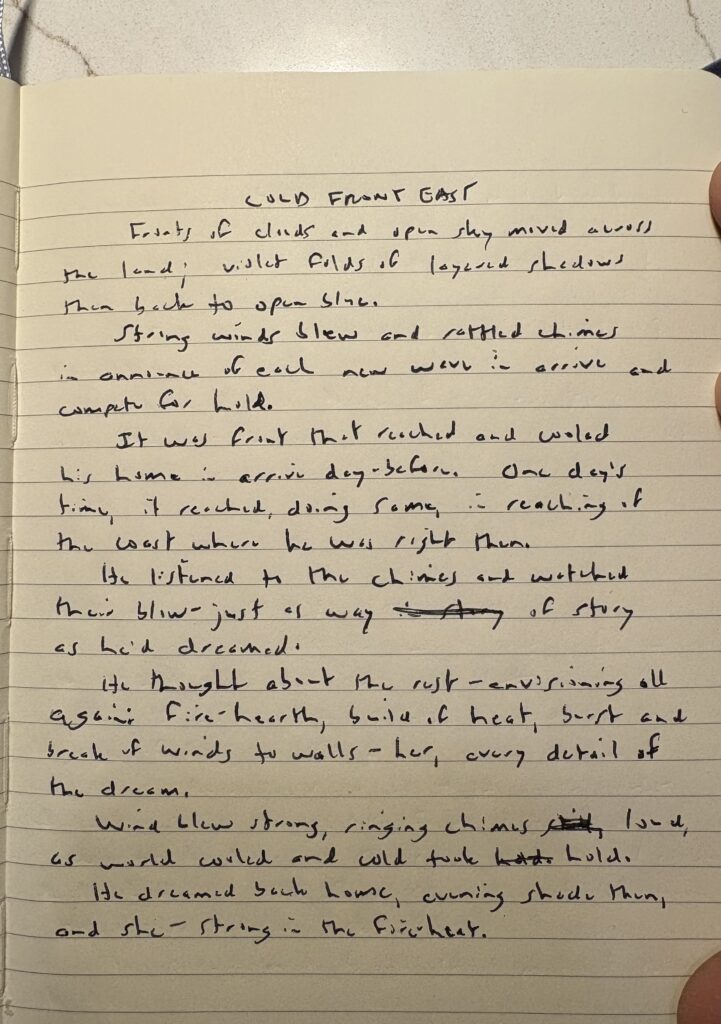 COLD FRONT EAST
Fronts of clouds and open sky moved across
the land; violet folds of layered shadows
then back to open blue.
Strong winds blew and rattled chimes
in announce of each new wave in arrive and
compete for hold.
It was front that reached and cooled
his home in arrive day-before. One day's
time, it reached, doing same, in reaching of
the coast where he was right then.
He listened to the chimes and watched
their blow-just as way of story
as he'd dreamed.
He thought about the rest - envisioning all
again: fire-hearth, build of heat, burst and
break of winds to walls - her, every detail of
the dream.
Wind blew strong, ringing chimes loud,
as world cooled and cold took hold.
He dreamed back home, evening shade then,
and she - strong in the fire-heat.